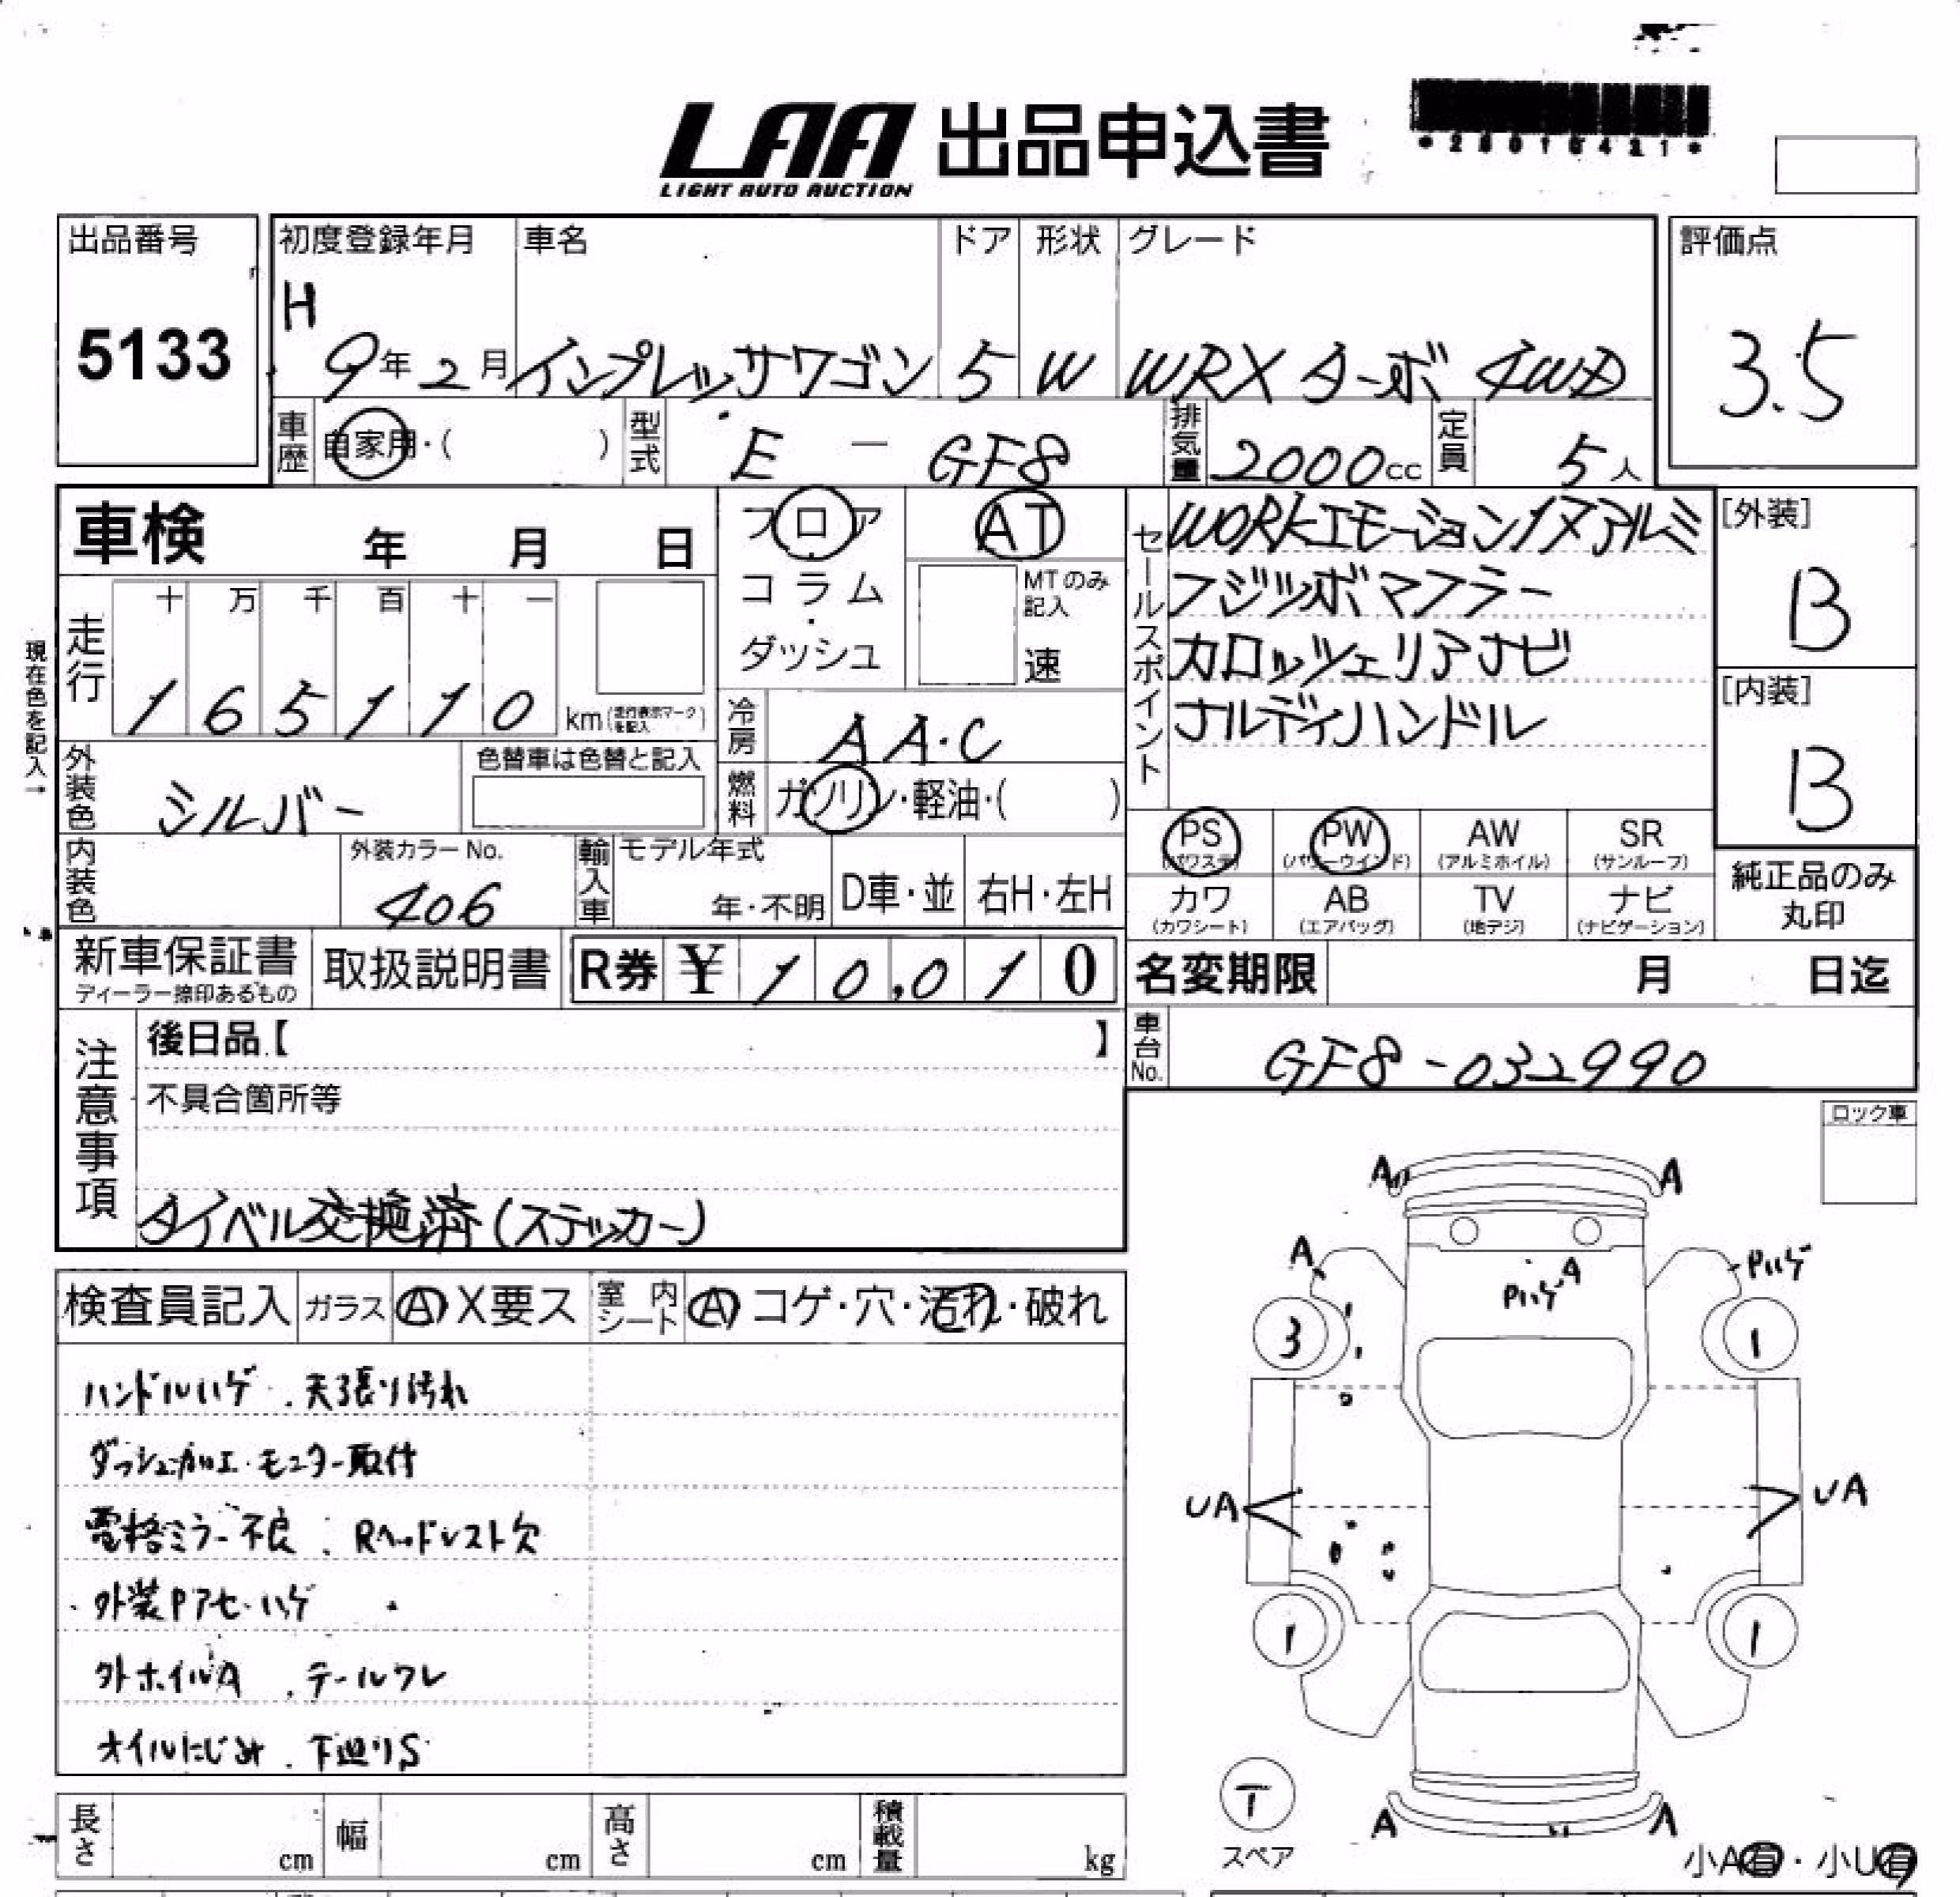 LAA 出品申込書
LIGHT AUTO AUCTION
出品番号
5133
初度登録年月
H 9年2月
車名
インプレッサワゴン
ドア
5
形状
W
グレード
WRXターボ 4WD
評価点
3.5
車歴
自家用・( )
型式
E - GF8
排気量
2000cc
定員
5人
車検 年 月 日
フロア・コラム・ダッシュ
AT
MTのみ記入
速
セールスポイント
WORKエモーション1ヌアルミ
フジツボマフラー
カロッツェリアナビ
ナルディハンドル
[外装]
B
[内装]
B
現在色を記入→
走行
十 万 千 百 十 一
1 6 5 1 1 0 km(走行表示マークを記入)
冷房
AA・C
外装色
シルバー
色替車は色替と記入
燃料
ガソリン・軽油・( )
PS (パワステ)
PW (パワーウインド)
AW (アルミホイル)
SR (サンルーフ)
カワ (カワシート)
AB (エアバッグ)
TV (地デジ)
ナビ (ナビゲーション)
純正品のみ丸印
内装色
外装カラーNo.
406
輸入車
モデル年式
年・不明
D車・並
右H・左H
新車保証書
ディーラー捺印あるもの
取扱説明書
R券 ¥ 10,010
名変期限 月 日迄
車台No.
GF8-032990
注意事項
後日品【 】
不具合箇所等
タイベル交換済(ステッカー)
ロック車
検査員記入
ガラス
A X要ス
室内シート
A コゲ・穴・汚れ・破れ
ハンドルハゲ.天張り汚れ
ダッシュ加工.モニター取付
電格ミラー不良.Rヘッドレスト欠
外装Pアセ.ハゲ
外ホイルA.テールワレ
オイルにじみ.下廻りS
A A
A
Pハゲ
A
Pハゲ
3 1
UA UA
1 1
T
スペア
A A
小A有・小U有
長さ cm
幅 cm
高さ cm
積載量 kg